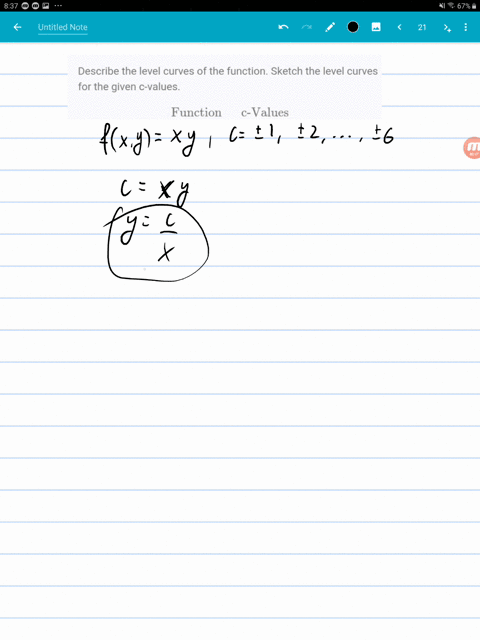 8:37
67%
Untitled Note
21
Describe the level curves of the function. Sketch the level curves
for the given c-values.
Function c-Values
f(x,y) = xy, C = ±1, ±2, ..., ±6
C = xy
y = c/x